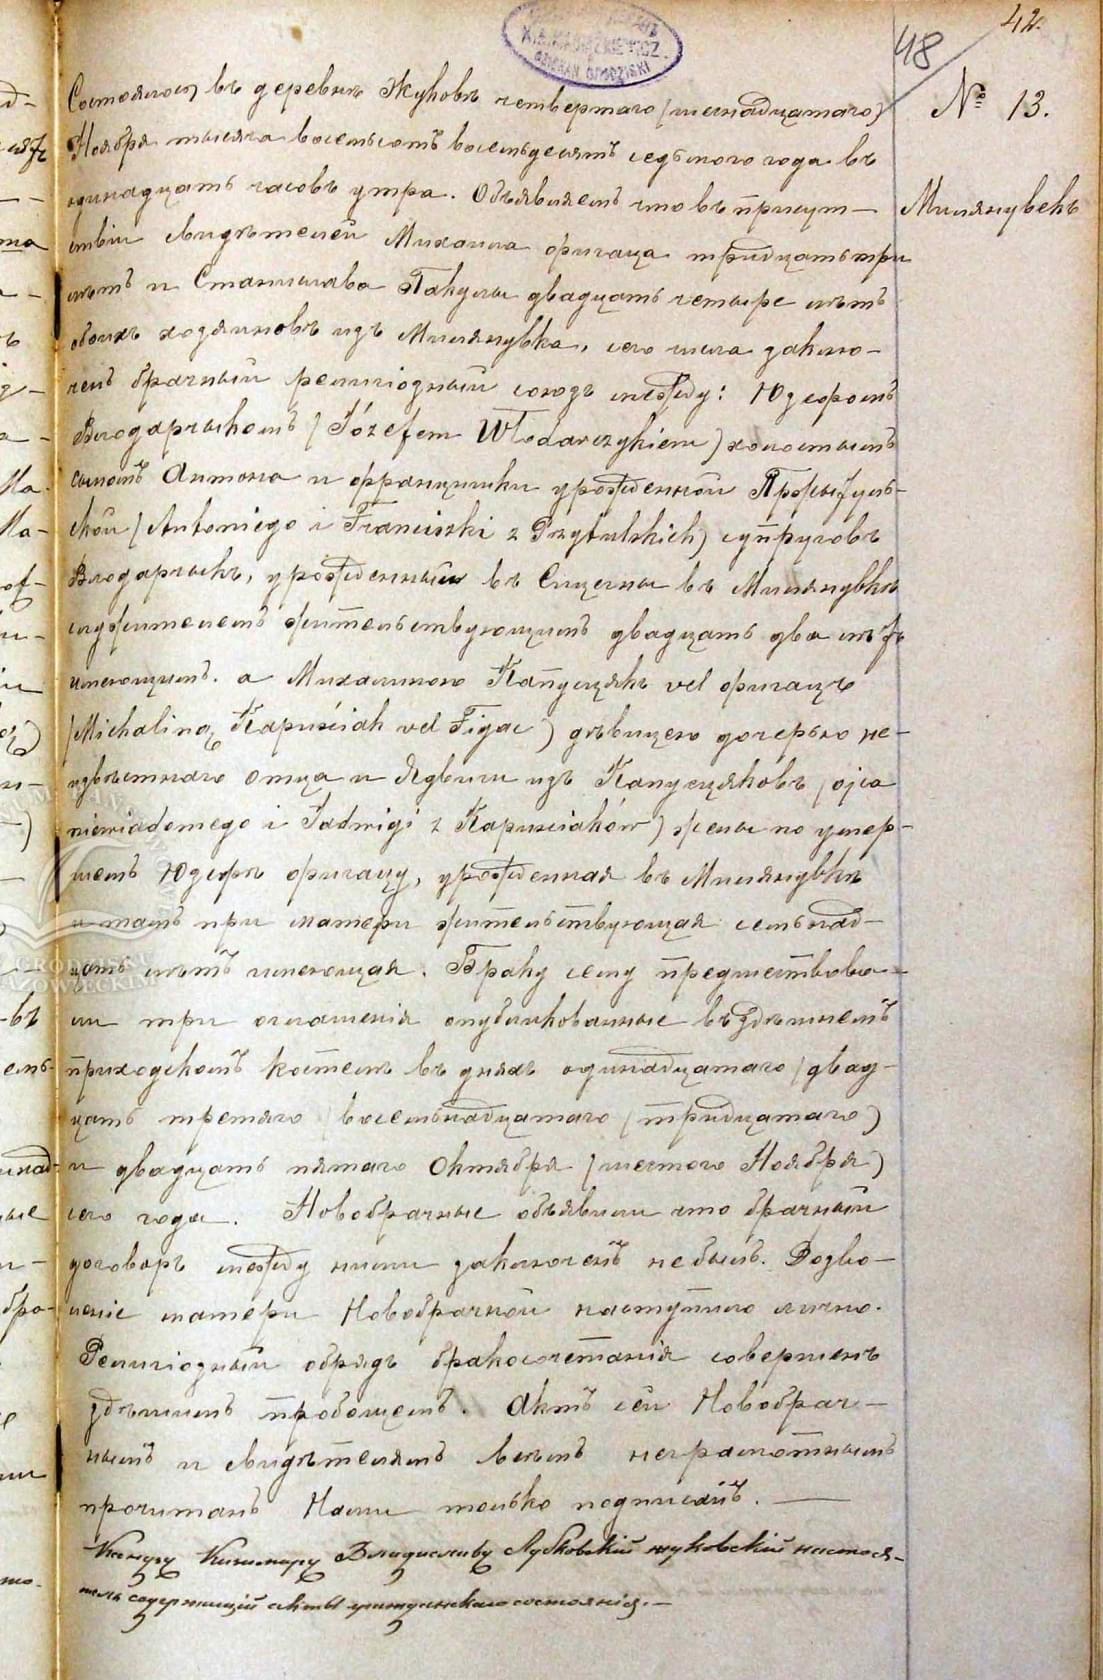 42.
48
№ 13.
Милянувекъ
Состоялось въ деревнѣ Жуковѣ четвертаго (шестнадцатаго)
Ноября тысяча восемьсотъ восемьдесятъ седьмого года въ
одинадцать часовъ утра. Объявляемъ что въ присут-
ствіи свидѣтелей Михаила Фигаца тридцать три
лѣтъ и Станислава Пакулы двадцать четыре лѣтъ
обоихъ хозяиновъ изъ Милянувка, сего числа заклю-
ченъ брачный религіозный союзъ между: Юзефомъ
Влодарчыкомъ (Józefem Włodarczykiem) холостымъ
сыномъ Антона и Францишки урожденной Пржытуль-
ской (Antoniego i Franciszki z Przytulskich) супруговъ
Влодарчыкъ, урожденный въ Сицены въ Милянувкѣ
служителемъ жительствующимъ двадцать два лѣтъ
имеющимъ. а Михалиною Капусцякъ vel Фигацъ
(Michaliną Kapuściak vel Figac) дѣвицею дочерью не-
извѣстнаго отца и Ядвиги изъ Капусцяковъ (ojca
niewiadomego i Jadwigi z Kapuściaków) жены по умер-
шемъ Юзефѣ Фигацу, урожденная въ Милянувкѣ
и тамъ при матери жительствующая семьнад-
цать лѣтъ имеющая. Браку сему предшествова-
ли три оглашенія опубликованные въ здѣшнемъ
приходскомъ костелѣ въ дняхъ одинадцатаго (двад-
цать третяго) восемьнадцатаго (тридцатаго)
и двадцать пятаго Октября (шестого Ноября)
сего года. Новобрачные объявили что брачный
договоръ между ними заключенъ не былъ. Позво-
леніе матери Новобрачной наступило лично.
Религіозный обрядъ бракосочетанія совершенъ
здѣшнимъ пробощемъ. Актъ сей Новобрач-
нымъ и свидѣтелямъ всѣмъ неграмотнымъ
прочитанъ Нами только подписанъ. —
Ксендзъ Владиславъ Лубковскій жуковскій настоя-
тель содержащій акты гражданскаго состоянія. —